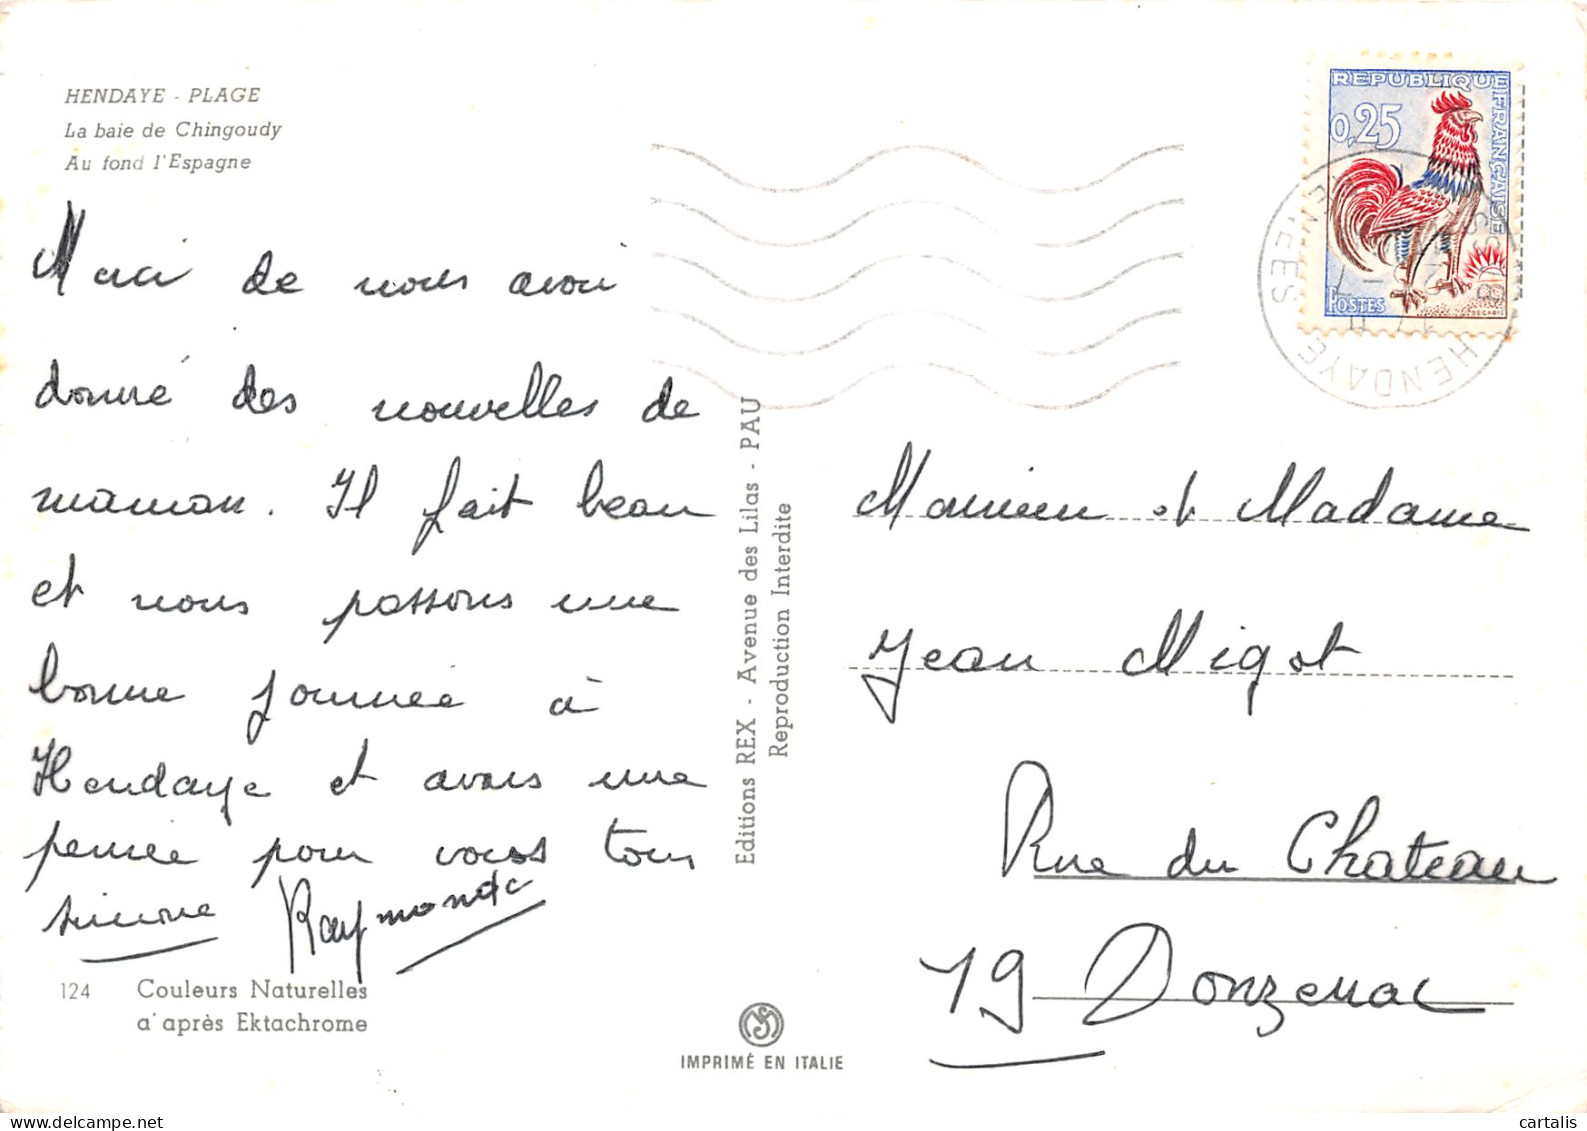 HENDAYE - PLAGE
La baie de Chingoudy
Au fond l'Espagne
Merci de nous avoir
donné des nouvelles de
maman. Il fait beau
et nous passons une
bonne journée à
Hendaye et avons une
pensée pour vous tous
Simone Raymonde
124 Couleurs Naturelles
a'après Ektachrome
Editions REX - Avenue des Lilas - PAU
Reproduction Interdite
IMPRIMÉ EN ITALIE
REPUBLIQUE FRANÇAISE
0,25
POSTES
DECARIS
HENDAYE
Monsieur et Madame
Jean Migot
Rue du Chateau
19 Donzenac
cartalis